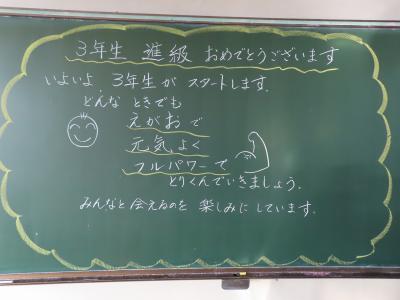 3年生 進級 おめでとうございます
いよいよ 3年生が スタートします.
どんな ときでも
えがおで
元気よく
フルパワーで
とりくんでいきましょう.
みんなと 会えるのを 楽しみに しています.